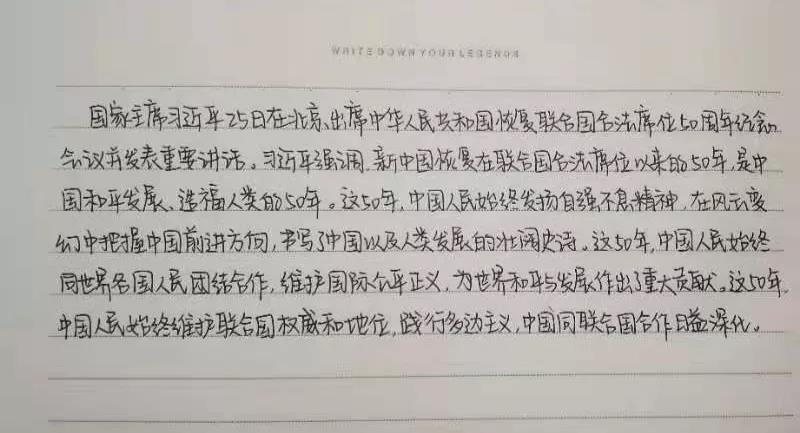 WRITE DOWN YOUR LEGENDS
国家主席习近平25日在北京出席中华人民共和国恢复联合国合法席位50周年纪念
会议并发表重要讲话。习近平强调,新中国恢复在联合国合法席位以来的50年,是中
国和平发展、造福人类的50年。这50年,中国人民始终发扬自强不息精神,在风云变
幻中把握中国前进方向,书写了中国以及人类发展的壮阔史诗。这50年,中国人民始终
同世界各国人民团结合作,维护国际公平正义,为世界和平与发展作出了重大贡献。这50年,
中国人民始终维护联合国权威和地位,践行多边主义,中国同联合国合作日益深化。